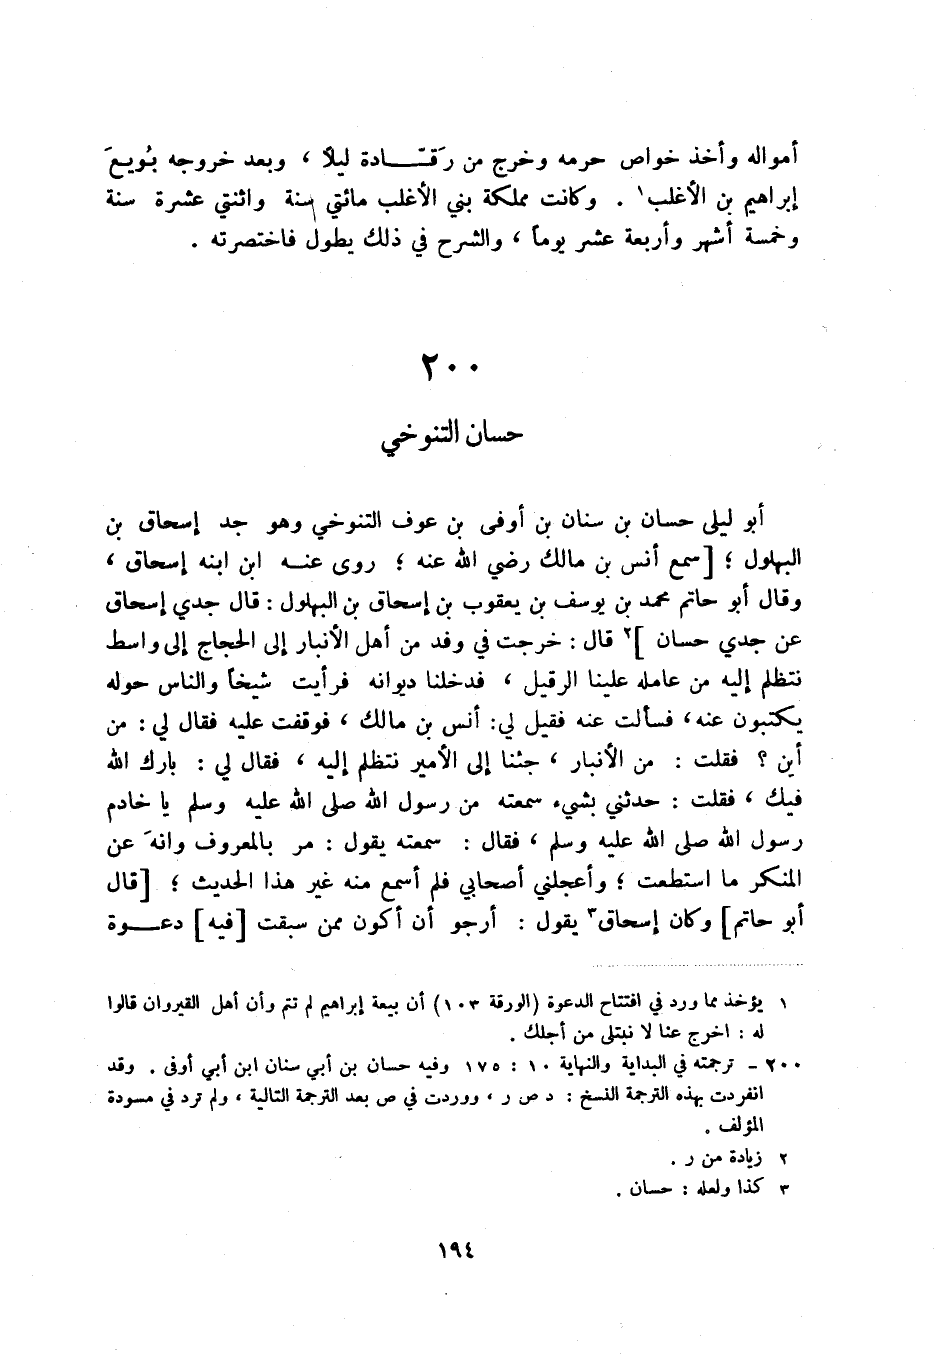 أمواله وأخذ خواص حرمه وخرج من رَقّادة ليلاً ، وبعد خروجه بُويعَ
إبراهيم بن الأغلب١ . وكانت مملكة بني الأغلب مائتي سنة واثنتي عشرة سنة
وخمسة أشهر وأربعة عشر يوماً ، والشرح في ذلك يطول فاختصرته .
٢٠٠
حسان التنوخي
أبو ليلى حسان بن سنان بن أوفى بن عوف التنوخي وهو جد إسحاق بن
البهلول ؛ [سمع أنس بن مالك رضي الله عنه ؛ روى عنه ابن ابنه إسحاق ،
وقال أبو حاتم محمد بن يوسف بن يعقوب بن إسحاق بن البهلول : قال جدي إسحاق
عن جدي حسان ]٢ قال : خرجت في وفد من أهل الأنبار إلى الحجاج إلى واسط
نتظلم إليه من عامله علينا الرقيل ، فدخلنا ديوانه فرأيت شيخاً والناس حوله
يكتبون عنه، فسألت عنه فقيل لي: أنس بن مالك ، فوقفت عليه فقال لي : من
أين ؟ فقلت : من الأنبار ، جئنا إلى الأمير نتظلم إليه ، فقال لي : بارك الله
فيك ، فقلت : حدثني بشيء سمعته من رسول الله صلى الله عليه وسلم يا خادم
رسول الله صلى الله عليه وسلم ، فقال : سمعته يقول : مر بالمعروف وانهَ عن
المنكر ما استطعت ؛ وأعجلني أصحابي فلم أسمع منه غير هذا الحديث ؛ [قال
أبو حاتم] وكان إسحاق٣ يقول : أرجو أن أكون ممن سبقت [فيه] دعوة
١ يؤخذ مما ورد في افتتاح الدعوة (الورقة ١٠٣) أن بيعة إبراهيم لم تتم وأن أهل القيروان قالوا
له : اخرج عنا لا نبتلى من أجلك .
٢٠٠ - ترجمته في البداية والنهاية ١٠ : ١٧٥ وفيه حسان بن أبي سنان ابن أبي أوفى . وقد
انفردت بهذه الترجمة النسخ : د ص ر ، ووردت في ص بعد الترجمة التالية ، ولم ترد في مسودة
المؤلف .
٢ زيادة من ر .
٣ كذا ولعله : حسان .
١٩٤